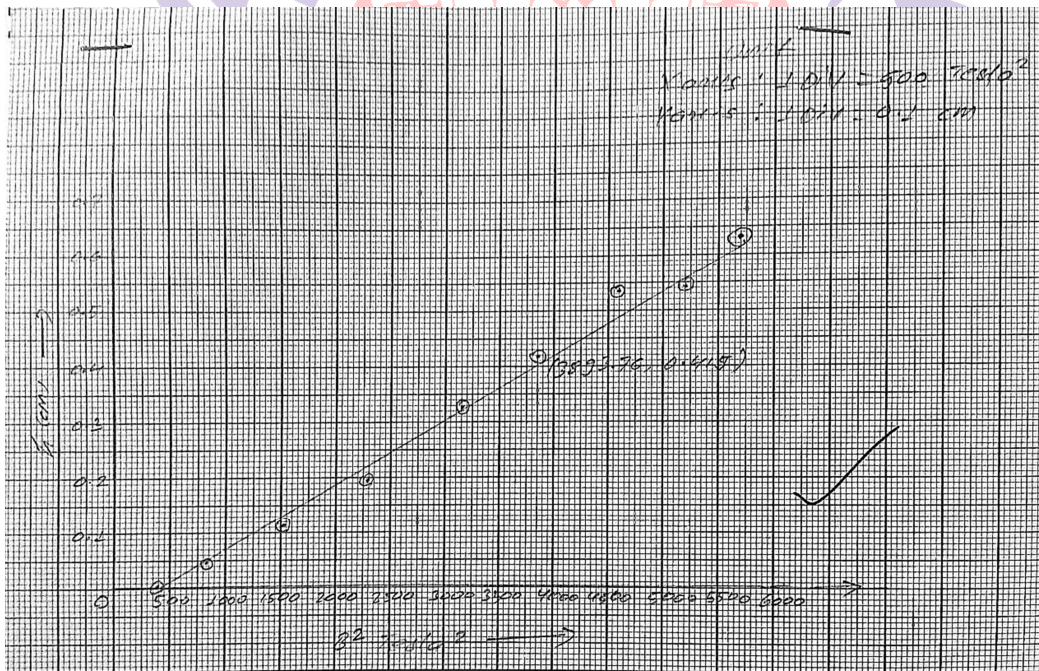 Unit
X axis : 1 DIV = 500 Tesla²
Y axis : 1 DIV = 0.1 cm
0.7
0.6
0.5
0.4
(3893.76, 0.415)
0.3
0.2
0.1
h (cm) →
0 500 1000 1500 2000 2500 3000 3500 4000 4500 5000 5500 6000
B² Tesla² →